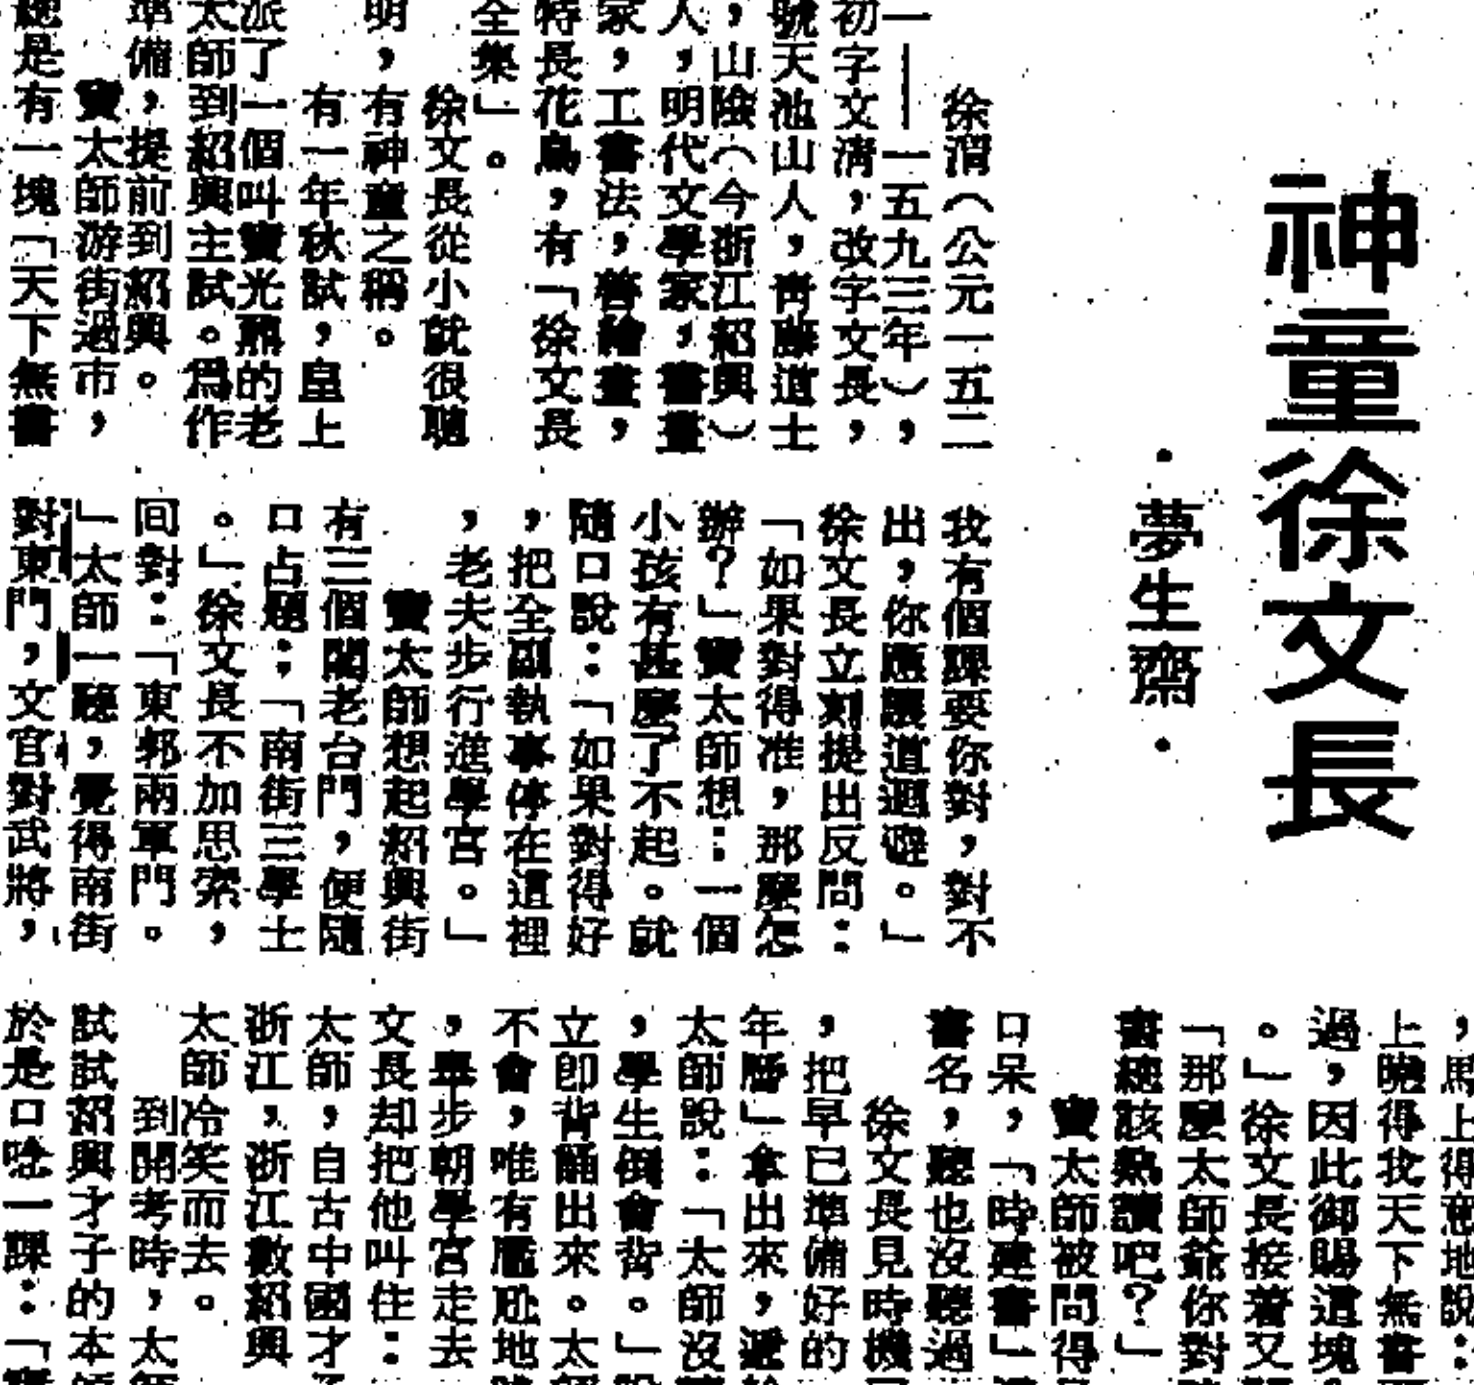 神童徐文長
·夢生齋·
徐渭（公元一五二
一——一五九三年），
初字文清，改字文長，
號天池山人，青藤道士
，山陰（今浙江紹興）
人，明代文學家，書畫
家，工書法，善繪畫，
特長花鳥，有「徐文長
全集」。
徐文長從小就很聰
明，有神童之稱。
有一年秋試，皇上
派了一個叫竇光鼐的老
太師到紹興主試。爲作
準備，提前到紹興。
竇太師游街過市，
總是有一塊「天下無書
我有個課要你對，對不
出，你應讓道迴避。」
徐文長立刻提出反問：
「如果對得准，那麼怎
辦？」竇太師想：一個
小孩有甚麼了不起。就
隨口說：「如果對得好
，把全副執事停在這裡
，老夫步行進學宮。」
竇太師想起紹興街
有三個閣老台門，便隨
口占題：「南街三學士
。」徐文長不加思索，
回對：「東郭兩軍門。
」太師一聽，覺得南街
對東門，文官對武將，
，馬上得意地說：
上曉得我天下無書
過，因此御賜這塊
。」徐文長接着又
「那麼太師爺你對
書總該熟讀吧？」
竇太師被問得
口呆，「時建書」
書名，聽也沒聽過
徐文長見時機
，把早已準備好的
年曆」拿出來，遞
太師說：「太師沒
，學生倒會背。」
立卽背誦出來。太
不會，唯有尷尬地
，畢步朝學宮走去
文長却把他叫住：
太師，自古中國才
浙江，浙江數紹興
太師冷笑而去。
到開考時，太
試試紹興才子的本
於是口唸一課：「